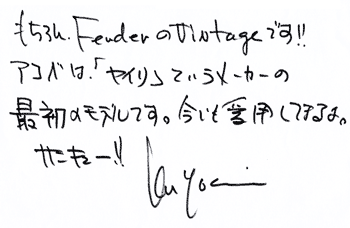 もちろん、FenderのVintageです!!
アコベは、「ヤイリ」というメーカーの
最初のモデルです。今でも愛用してますよ。
サンキュー!!